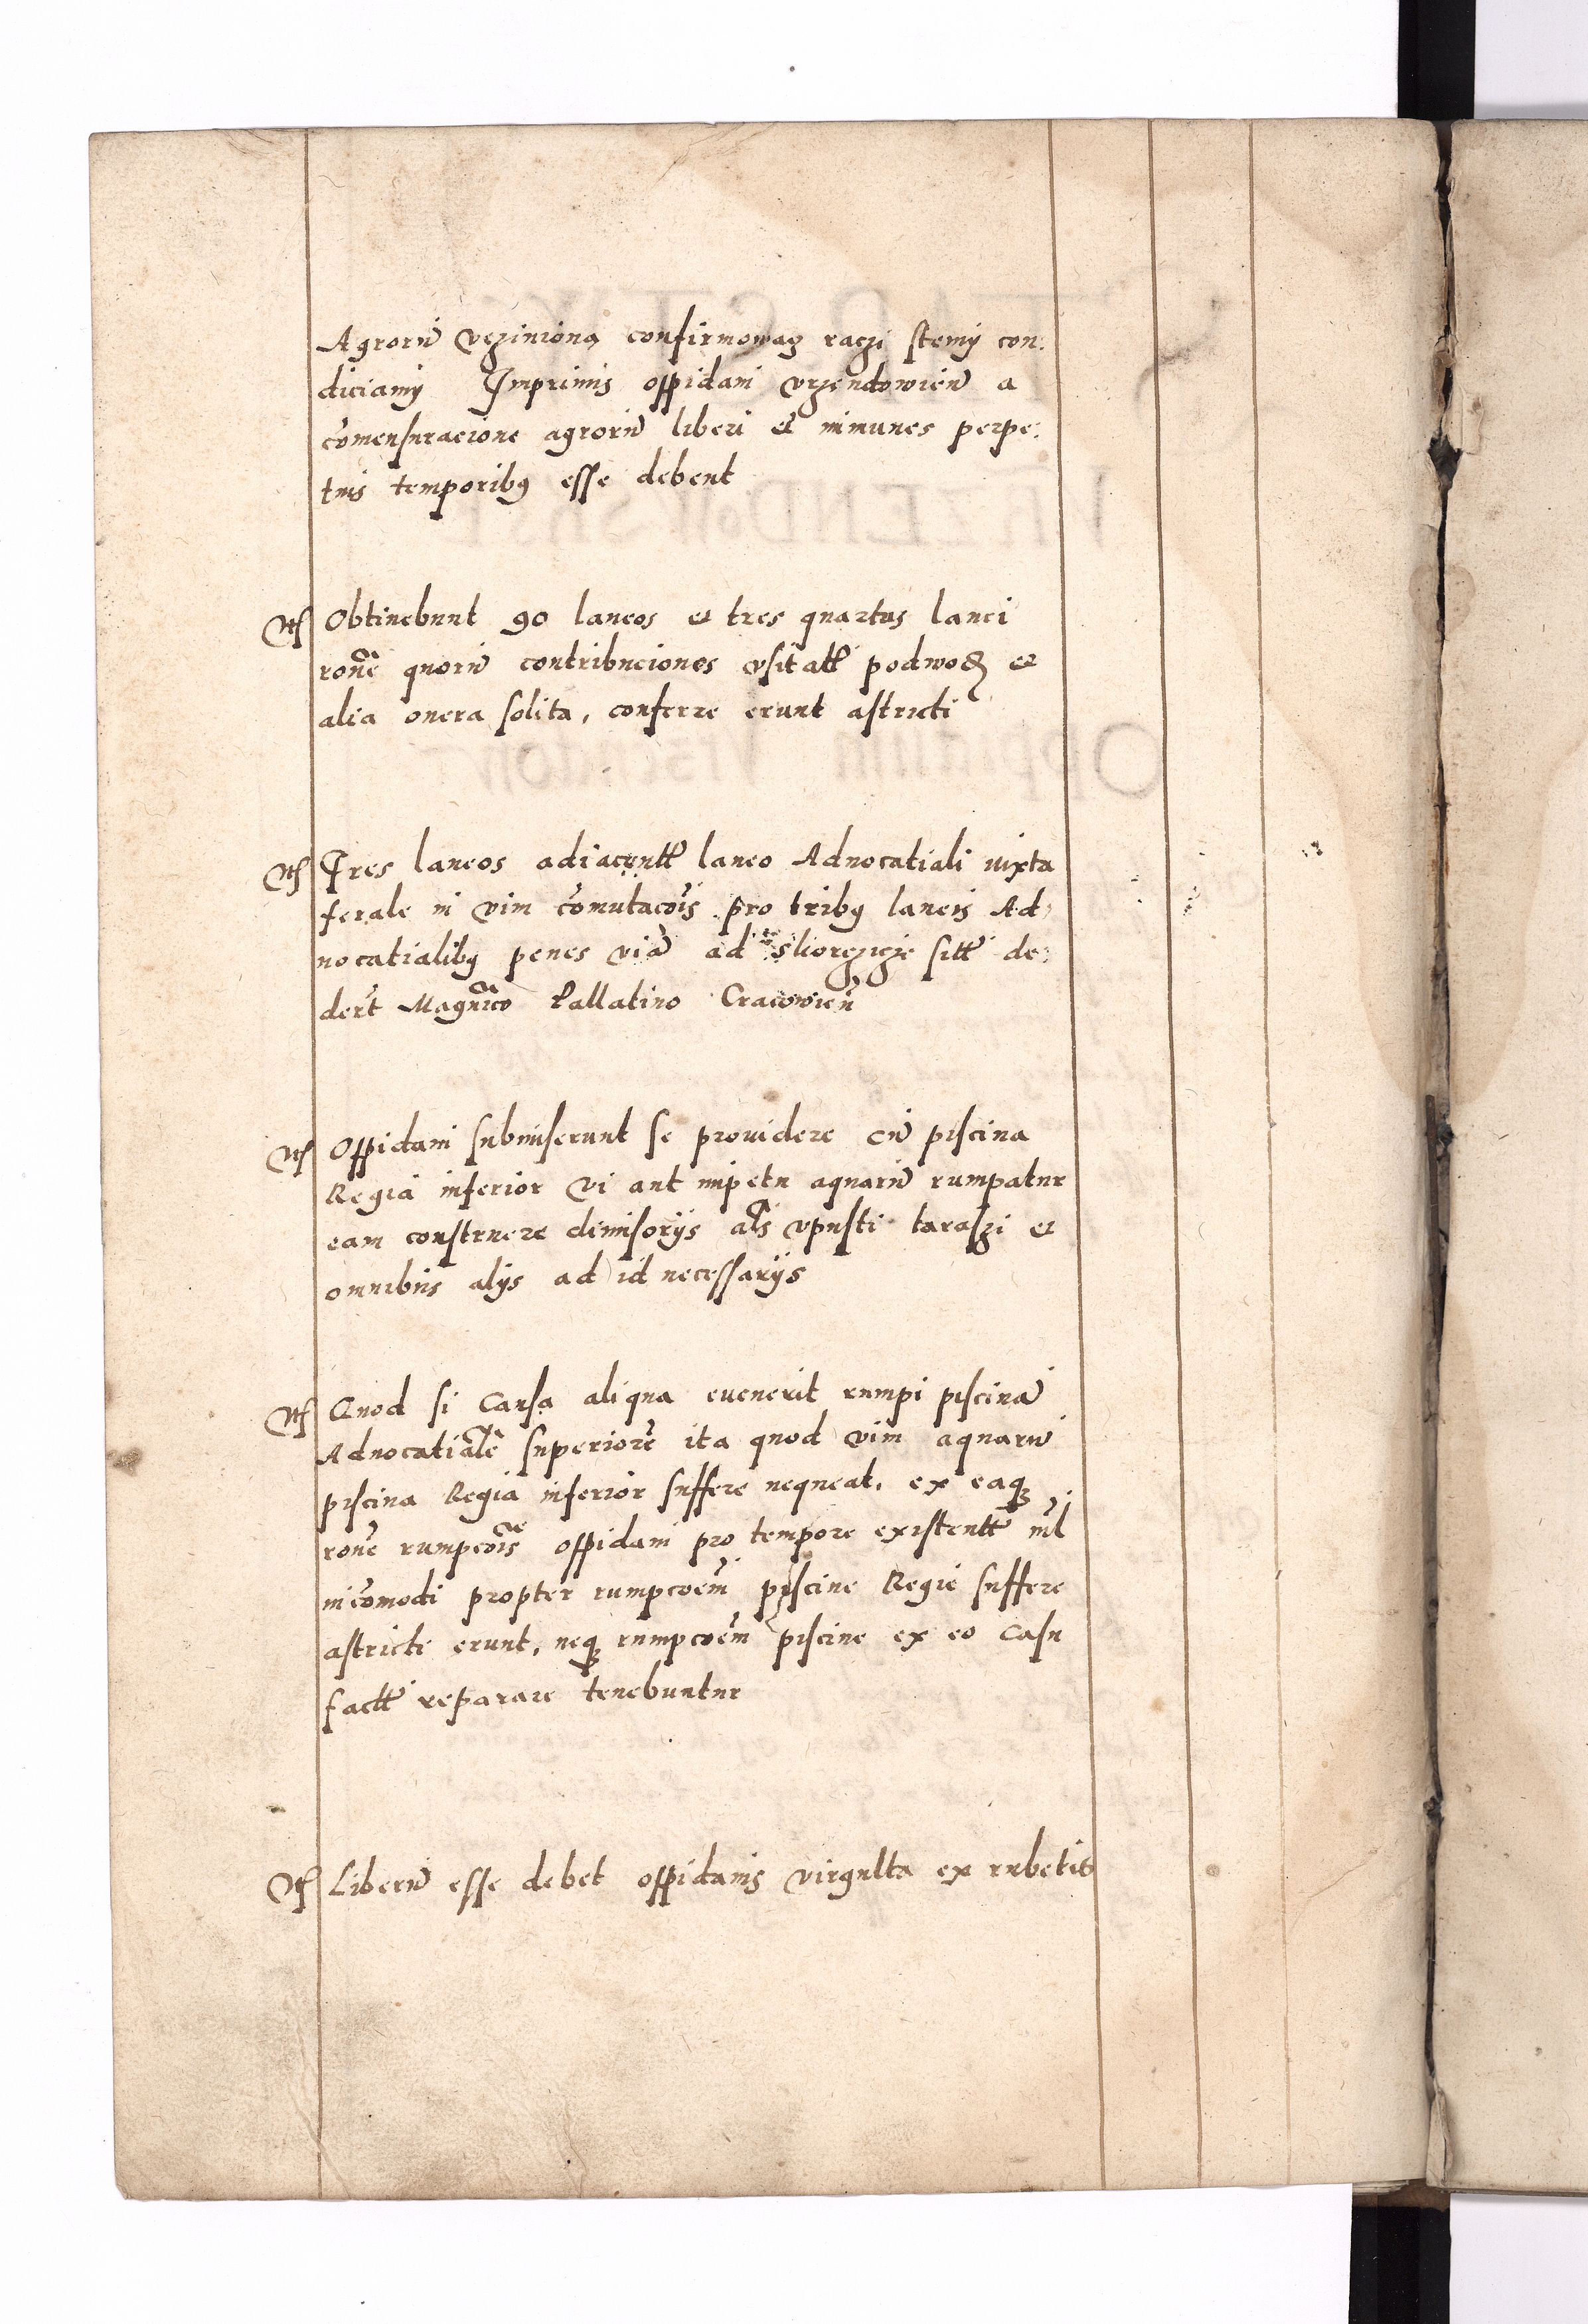 Agrorū vcziniona confirmowacz raczi stemy con:
diciamy Imprimis oppidani vrzendowien̄ a
com̄ensuracione agrorū liberi et immunes perpe:
tuis temporibq esse debent
Itē Obtinebunt 90 laneos et tres quartas lanei
ron̄e quorū contribuciones vsitatt podwod et
alia onera solita, conferre erunt astricti
Itē Tres laneos adiacentt laneo Aduocatiali iuxta
ferale in vim com̄utac̄ois pro tribq laneis Ad:
uocatialibq penes viā ad Skorczicze sitt de:
dert̄ Magn̄ico Pallatino Cracowien̄
Itē Oppidani submiserunt se prouidere cū piscina
Regia inferior vi aut impetu aquarū rumpatur
eam construere dimisorijs al̄s vpusti taraszi et
omnibus alijs ad id necessarijs
Itē Quod si Causa aliqua euenerit rumpi piscinā
Aduocatialē superiorē ita quod vim aquarū
piscina Regia inferior suffere nequeat, ex eaq
ron̄e rumpc̄ois oppidani pro tempore existentt nil̄
incom̄odi propter rumpc̄oem piscine Regie suffere
astricti erunt, neq rumpc̄oem piscine ex eo Casu
factt reparare tenebuntur
Itē Liberū esse debet oppidanis virgulta ex rubetis